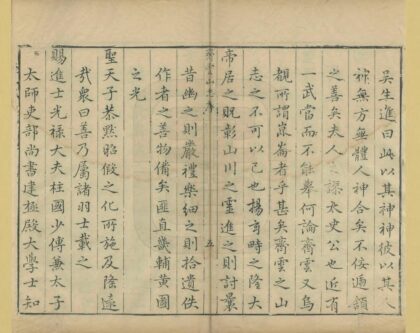 吳生進曰此以其神神彼以其人
神無方無體人神合矣不佞
之善矣夫人謬太史公也近有
一武當而不能舉何論齊雲又烏
覩所謂崑崙者乎甚矣齊雲之山
志之不可以已也揚時之隆大
帝居之貺彰山川之靈進之則討曩
齊雲山志序 五
昔幽之則嚴禮樂細之則拾遺佚
作者之善物備矣匪直畿輔黃國
之光
聖天子恭默昭假之化所施及遠
哉衆曰善乃屬諸羽士載之
賜進士光祿大夫柱國少傅兼太子
太師吏部尚書建極殿大學士知